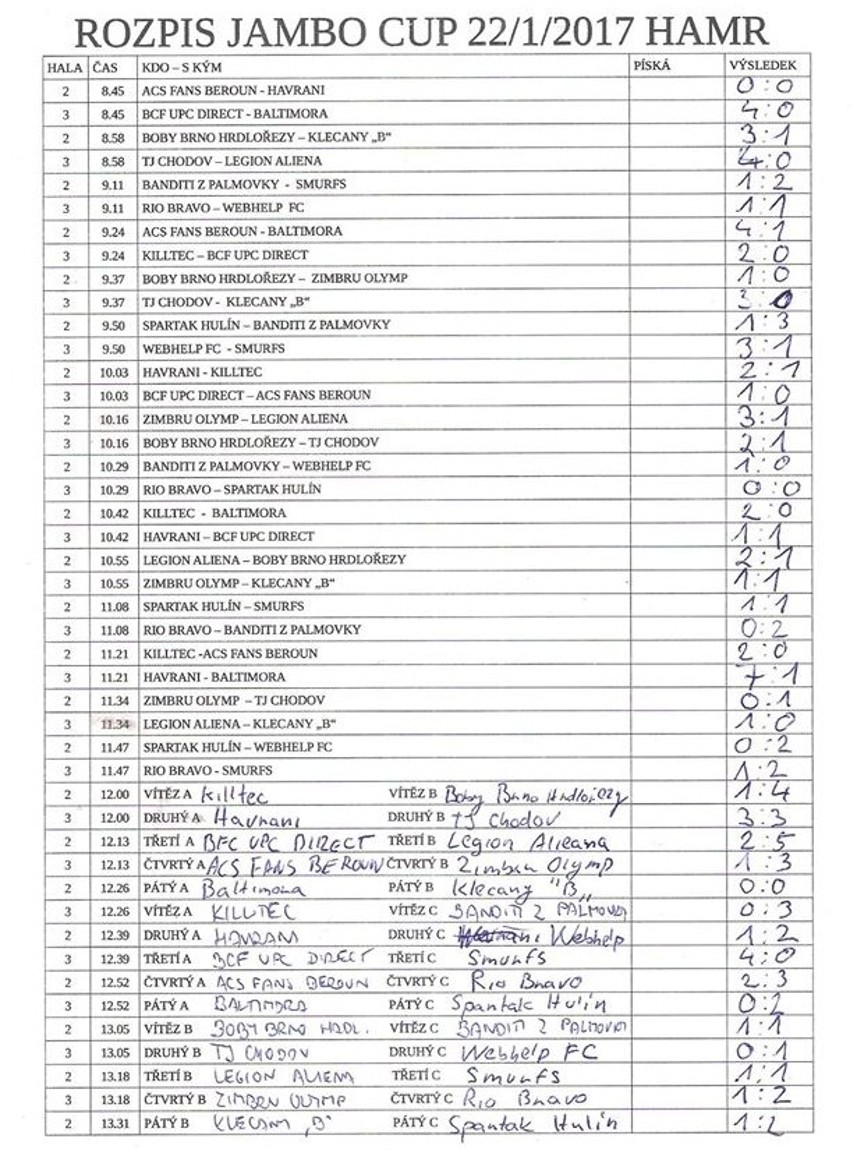 ROZPIS JAMBO CUP 22/1/2017 HAMR
HALA ČAS KDO – S KÝM PÍSKÁ VÝSLEDEK
2 8.45 ACS FANS BEROUN - HAVRANI 0:0
3 8.45 BCF UPC DIRECT - BALTIMORA 4:0
2 8.58 BOBY BRNO HRDLOŘEZY – KLECANY „B“ 3:1
3 8.58 TJ CHODOV – LEGION ALIENA 4:0
2 9.11 BANDITI Z PALMOVKY - SMURFS 1:2
3 9.11 RIO BRAVO – WEBHELP FC 1:1
2 9.24 ACS FANS BEROUN - BALTIMORA 4:1
3 9.24 KILLTEC – BCF UPC DIRECT 2:0
2 9.37 BOBY BRNO HRDLOŘEZY – ZIMBRU OLYMP 1:0
3 9.37 TJ CHODOV - KLECANY „B“ 3:0
2 9.50 SPARTAK HULÍN – BANDITI Z PALMOVKY 1:3
3 9.50 WEBHELP FC - SMURFS 3:1
2 10.03 HAVRANI - KILLTEC 2:1
3 10.03 BCF UPC DIRECT – ACS FANS BEROUN 1:0
2 10.16 ZIMBRU OLYMP – LEGION ALIENA 3:1
3 10.16 BOBY BRNO HRDLOŘEZY – TJ CHODOV 2:1
2 10.29 BANDITI Z PALMOVKY – WEBHELP FC 1:0
3 10.29 RIO BRAVO – SPARTAK HULÍN 0:0
2 10.42 KILLTEC - BALTIMORA 2:0
3 10.42 HAVRANI – BCF UPC DIRECT 1:1
2 10.55 LEGION ALIENA – BOBY BRNO HRDLOŘEZY 2:1
3 10.55 ZIMBRU OLYMP – KLECANY „B“ 1:1
2 11.08 SPARTAK HULÍN – SMURFS 1:1
3 11.08 RIO BRAVO – BANDITI Z PALMOVKY 0:2
2 11.21 KILLTEC -ACS FANS BEROUN 2:0
3 11.21 HAVRANI - BALTIMORA 7:1
2 11.34 ZIMBRU OLYMP – TJ CHODOV 0:1
3 11.34 LEGION ALIENA – KLECANY „B“ 1:0
2 11.47 SPARTAK HULÍN – WEBHELP FC 0:2
3 11.47 RIO BRAVO - SMURFS 1:2
2 12.00 VÍTĚZ A Killtec VÍTĚZ B Boby Brno Hrdlořezy 1:4
3 12.00 DRUHÝ A Havrani DRUHÝ B TJ Chodov 3:3
2 12.13 TŘETÍ A BFC UPC DIRECT TŘETÍ B Legion Alieana 2:5
3 12.13 ČTVRTÝ A ACS FANS BEROUN ČTVRTÝ B Zimbru Olymp 1:3
2 12.26 PÁTÝ A Baltimora PÁTÝ B Klecany "B„ 0:0
3 12.26 VÍTĚZ A KILLTEC VÍTĚZ C BANDITI Z PALMOVKY 0:3
2 12.39 DRUHÝ A HAVRANI DRUHÝ C Webhelp 1:2
3 12.39 TŘETÍ A BCF UPC DIRECT TŘETÍ C Smurfs 4:0
2 12.52 ČTVRTÝ A ACS FANS BEROUN ČTVRTÝ C Rio Bravo 2:3
3 12.52 PÁTÝ A BALTIMORA PÁTÝ C Spartak Hulín 0:2
2 13.05 VÍTĚZ B BOBY BRNO HRDL. VÍTĚZ C BANDITI Z PALMOVKY 1:1
3 13.05 DRUHÝ B TJ CHODOV DRUHÝ C Webhelp FC 0:1
2 13.18 TŘETÍ B LEGION ALIENA TŘETÍ C Smurfs 1:1
3 13.18 ČTVRTÝ B ZIMBRU OLYMP ČTVRTÝ C Rio Bravo 1:2
2 13.31 PÁTÝ B KLECANY „B“ PÁTÝ C Spartak Hulín 1:2